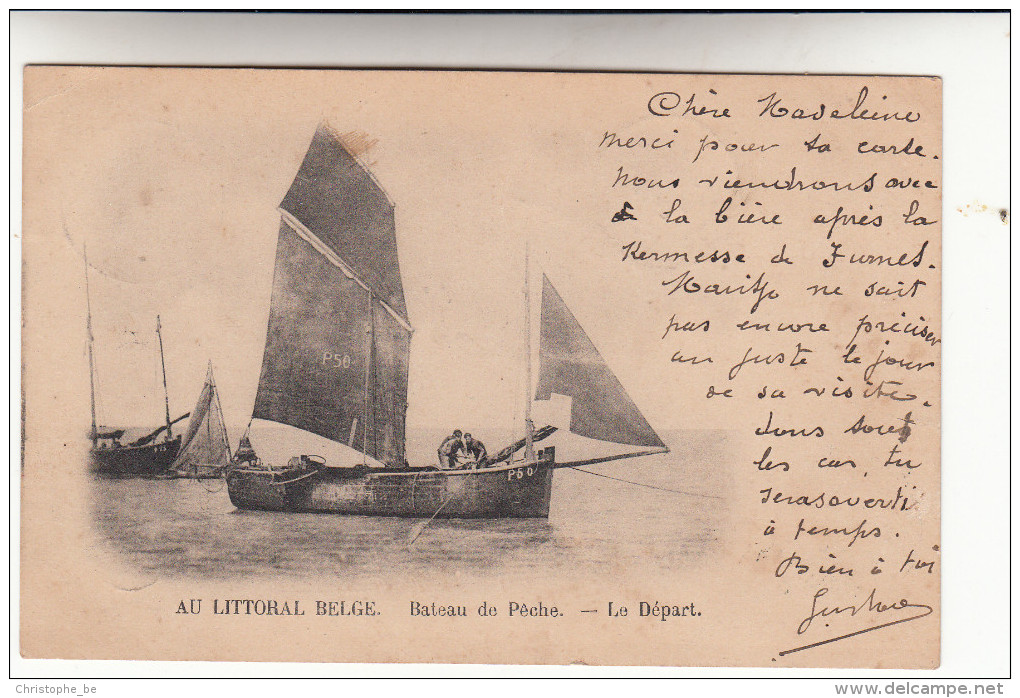 Chère Madeleine
merci pour ta carte.
Nous viendrons avec
à la bière après la
Kermesse de Furnes.
ne sait
pas encore préciser
au juste le jour
de sa visite.
Dans tout
les cas, tu
seras averti
à temps.
Bien à toi
Gustave
P50
P50
AU LITTORAL BELGE. Bateau de Pêche. — Le Départ.
Christophe_be
www.delcampe.net